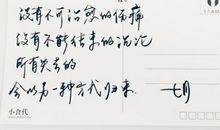 没有不可治愈的伤痛
没有不能结束的沉沦
所有失去的
会以另一种方式归来
七月
小食代
STAM